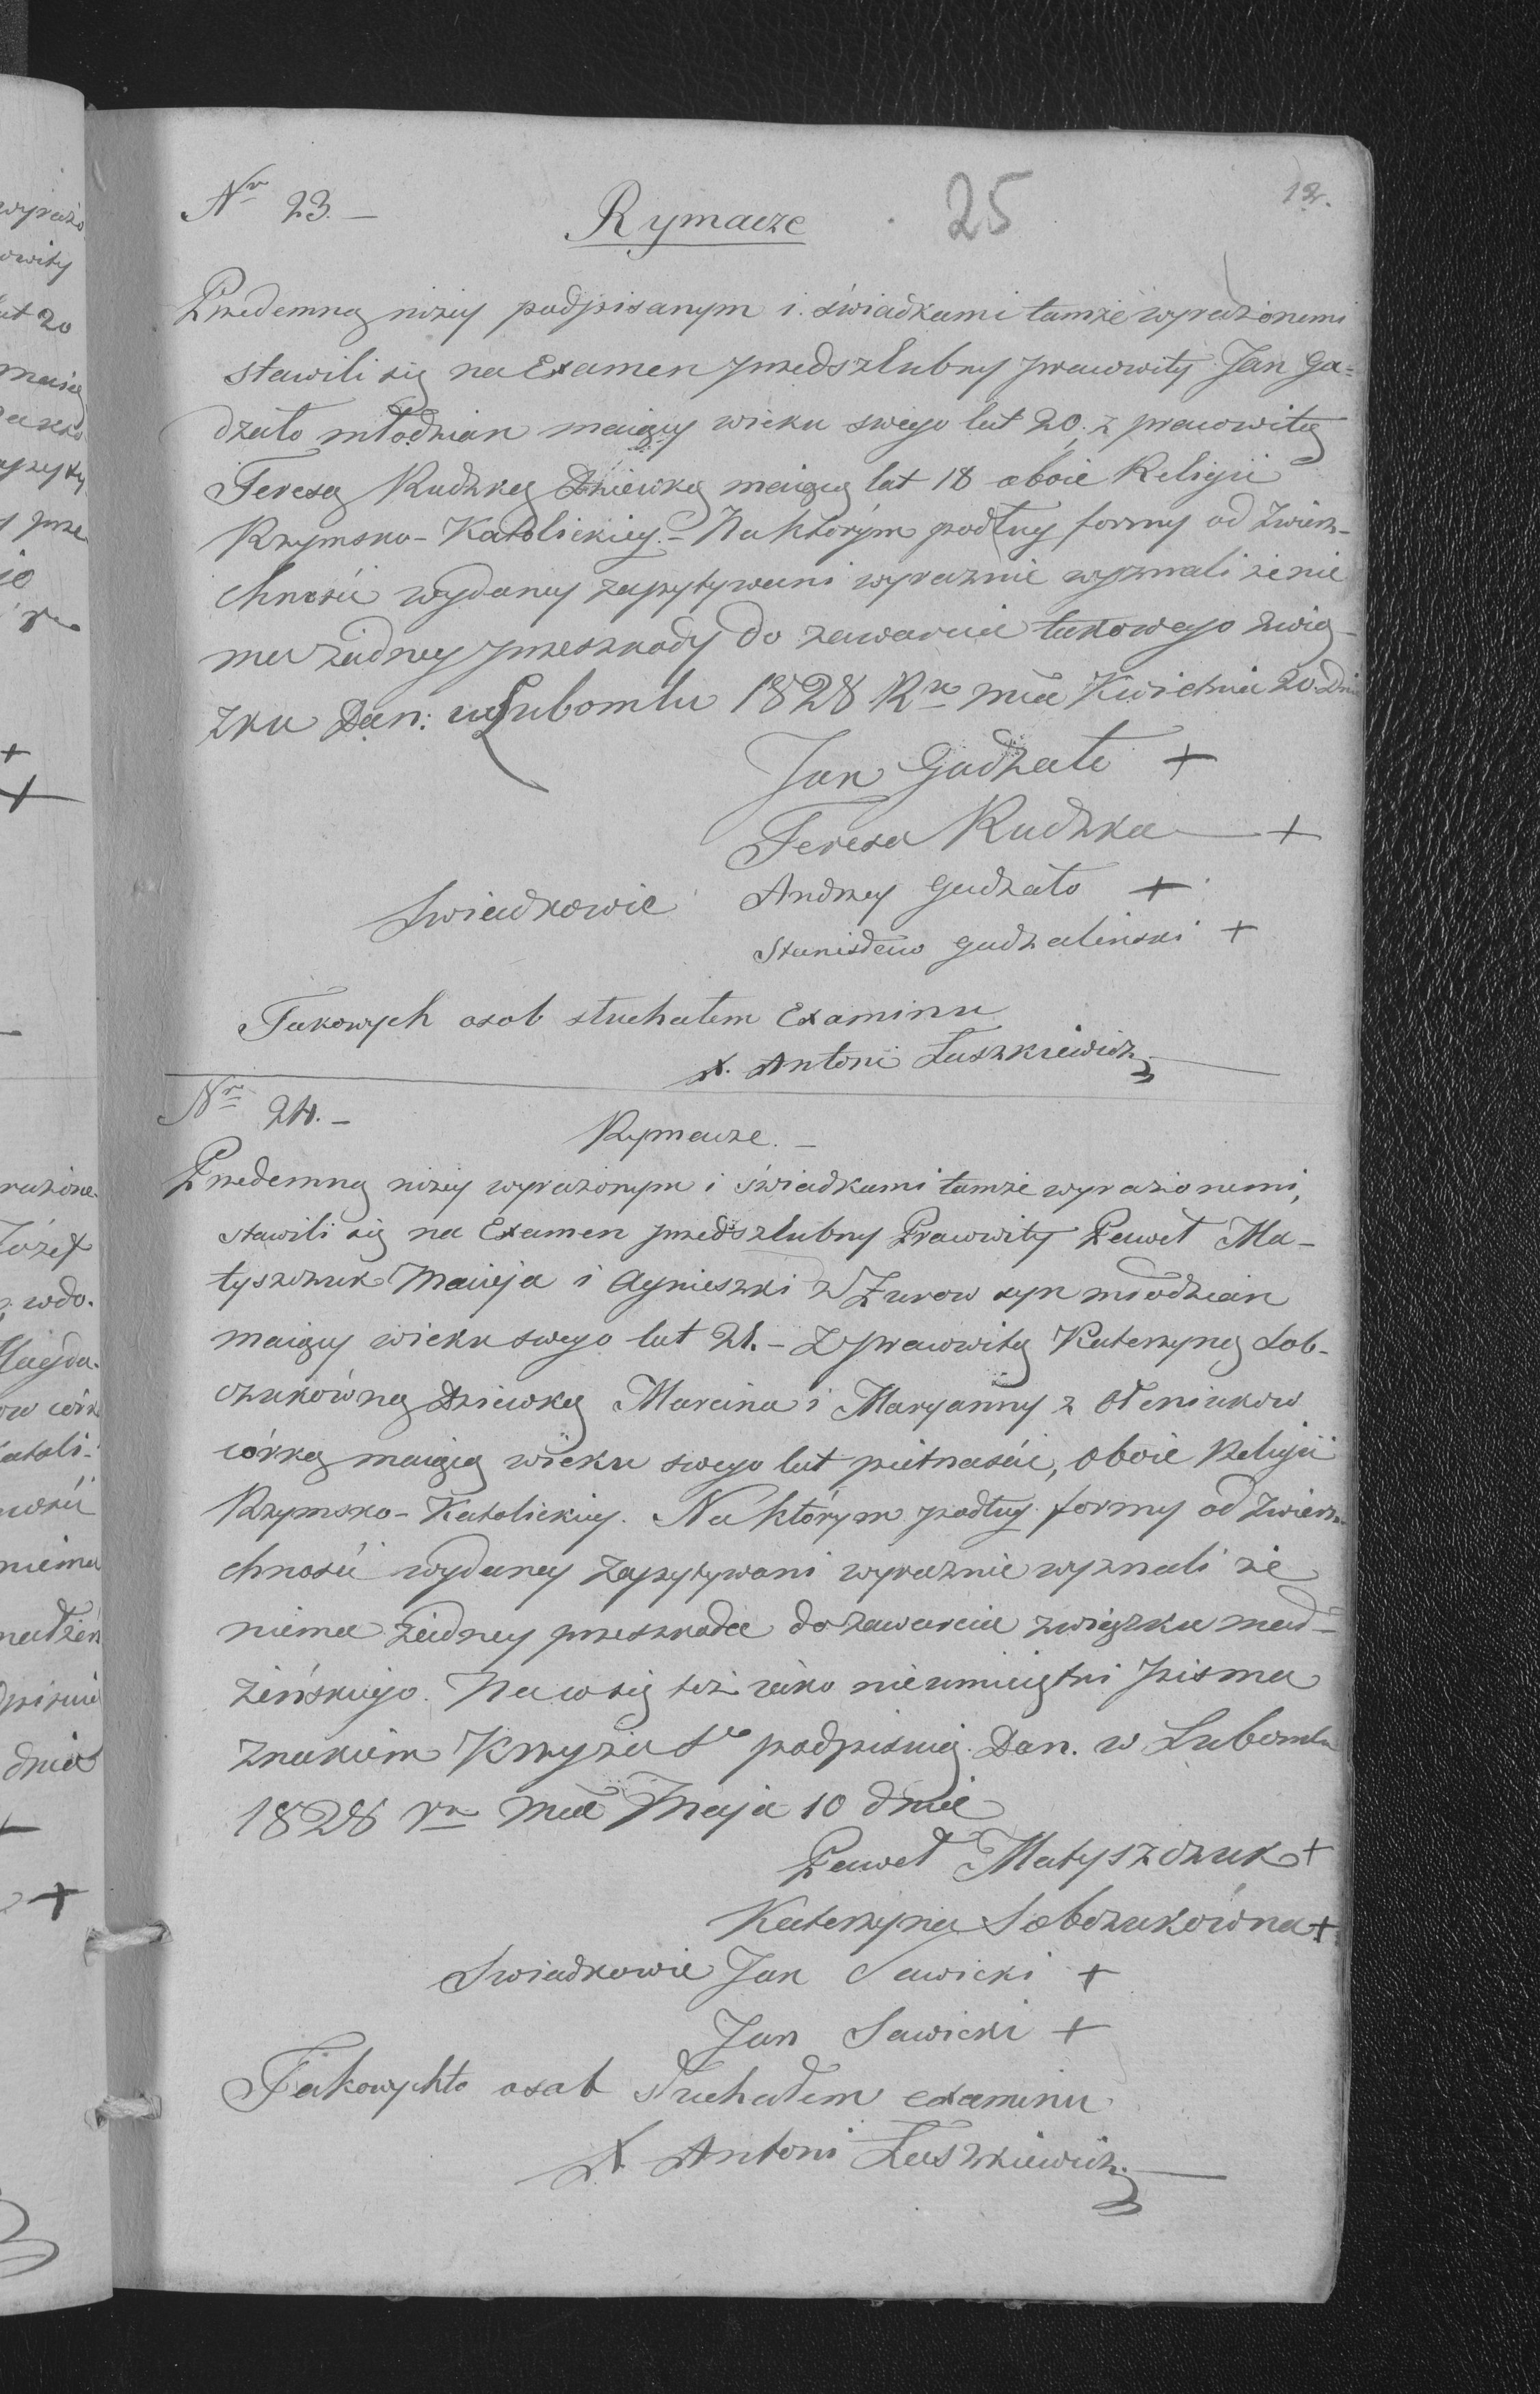 Nr 23. —
Rymacze
25
12.
Przedemną niżey podpisanym i świadkami tamże wyrażonemi
stawili się na Examen przedszlubny pracowity Jan Ga=
dzało młodzian maiący wieku swego lat 20. z pracowitą
Teresą Rudzką Dziewką maiącą lat 18 oboie Religii
Rzymsko-Katolickiey. - Na którym podług formy od Zwierz-
chności wydaney zapytywani wyraznie wyznali że nie
ma żadney przeszkody do zawarcia takowego zwią-
zku Dan: w Lubomlu 1828 Rr mca Kwietnia 20. Dnia
Jan Gadzało +
Teresa Rudzka +
Swiadkowie Andrzey Gadzało +
Stanisław Gadzaliński +
Takowych osob słuchałem Examinu
X. Antoni Łaszkiewicz
Nr 24. —
Rymacze. —
Przedemną niżey wyrażonym i świadkami tamże wyrażonemi,
stawili się na Examen przedszlubny Pracowity Paweł Ma-
tyszczuk Macieja i Agnieszki z Żurow syn młodzian
maiący wieku swego lat 21. - z pracowitą Katerzyną Sob-
czukówną Dziewką Marcina i Maryanny z Ołeniukow
córką maiącą wieku swego lat pietnaście, oboie Religii
Rzymsko-Katolickiey. Na którym podług formy od Zwierz-
chności wydaney zapytywani wyraznie wyznali że
niema żadney przeszkoda do zawarcia związku mał-
żeńskiego. Na co się też iako nieumieiętni pisma
znakiem Krzyża S podpisuią. Dan. w Lubomlu
1828 rr mca Maja 10 dnia
Paweł Matyszczuk +
Katerzyna Sobczukówna +
Swiadkowie Jan Sawicki +
Jan Sawicki +
Takowychto osob słuchałem examinu
X Antoni Łaszkiewicz